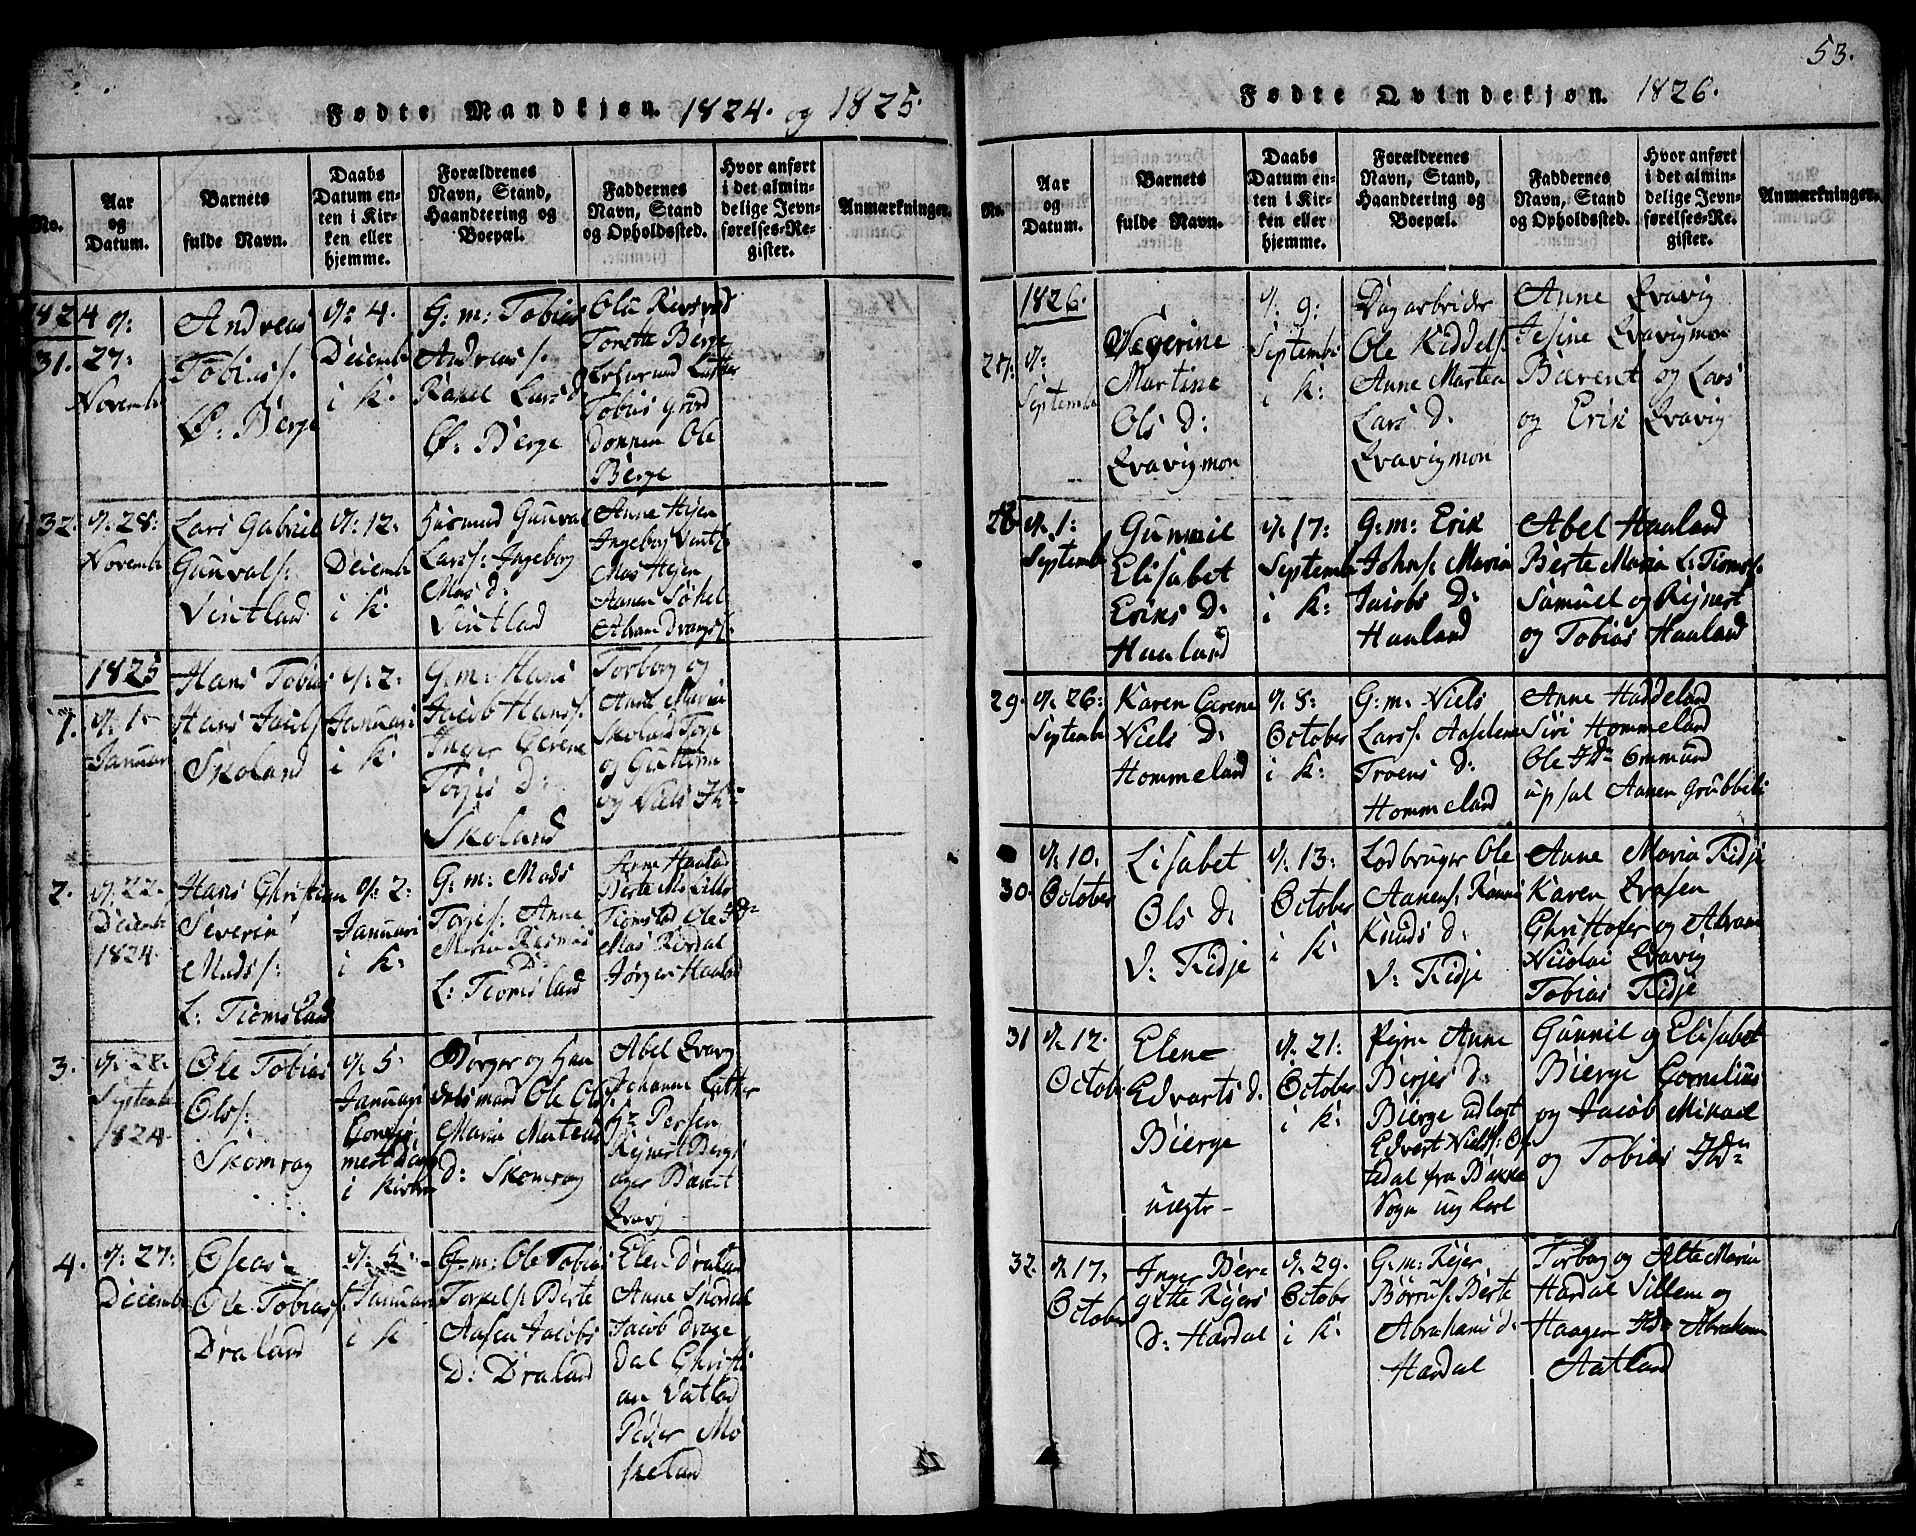 Fødte Mandkjøn. 1824. og 1825.
No.
Aar
og
Datum.
Barnets
fulde Navn.
Daabs
Datum en-
ten i Kir-
ken eller
hjemme.
Forældrenes
Navn, Stand,
Haandtering og
Boepæl.
Faddernes
Navn, Stand
og Opholdssted.
Hvor anført
i det almin-
delige Jevn-
førelses-Re-
gister.
Anmærkninger.
1824
31.
d: 27:
Novemb
Andreas
Tobiass:
Ø: Berge
d: 4.
Decemb
i K.
G: m: Tobias
Andreass:
Rakel Lars d
Ø: Berge
Ola
Torette Berge
Tobias
Ole
Berge
32.
d: 28:
Novemb
Lars Gabriel
Gunvals:
Vintland
d: 12:
Decemb
i K:
Husmd Gunval
Larss: Ingeborg
Mas d:
Vintland
Anne Hejen
Ingeborg Vintl
Mas Hejen
Aanen
1825
1.
d: 1.
Januari
Hans Tobias
Hans Jacobs:
Skoland
d: 2:
Januari
i K:
G: m: Hans
Jacob Hanss:
Inger Serene
Torjes D:
Skoland
Torborg og
Anne Maria
Skoland Torje
og
og Niels Jb:
2.
d: 22.
Decemb
1824.
Hans Christian
Severin
Madss:
L: Tiomsland
d: 2:
Januari
i K:
G: m: Mads
Torjes: Anne
Maria Rasmus
D:
L: Tiomsland
Anne Haaland
Berte M: Lille
Tiomsld Ole Jd
Mas Rørdal
Jørgen Haaland
3.
d: 28:
Septemb
1824
Ole Tobias
Olss:
Skomrag
d: 5
Januari
i Kirken
Børger og Han
delsmand Ole Ols
Maria Mateas
d: Skomrag
Abel Qvavig
Johanne
Hr Persen
Rejnert Berge
Qvavig
4.
d: 27:
Decemb
Oseas
Ole Tobiass:
Draland
d: 5
Januari
i K
G: m: Ole Tobias
Torkels: Berte
Aasen Jacobs
D: Draland
Elen Draland
Anne
Jacob Drage
dal Christi
an Vatland
Peder Mø
skeland
53.
Fødte Qvindekjøn. 1826.
No.
Aar
og
Datum.
Barnets
fulde Navn.
Daabs
Datum en-
ten i Kir-
ken eller
hjemme.
Forældrenes
Navn, Stand,
Haandtering og
Boepæl.
Faddernes
Navn, Stand
og Opholdssted.
Hvor anført
i det almin-
delige Jevn-
førelses-Re-
gister.
Anmærkninger.
1826.
27.
d:
Septemb
Severine
Martine
Ols D:
Qvavigmon
d: 9:
Septemb
i K:
Dagarbeider
Ole Kiddels:
Anne Martea
Lars D:
Qvavigmon
Anne Qvavig
Jesine Qvavigmon
Bærent og Lars
og Erik Qvavig
28
d: 1:
Septemb
Gunnil
Elisabet
Eriks D:
Haaland
d: 17:
Septemb
i K:
G: m: Erik
Johns: Maria
Jacobs D:
Haaland
Abel Haaland
Berte Maria L: Tiomsl:
Samuel og Rejnert
og Tobias Haaland
29.
d: 26:
Septemb
Karen Serene
Niels D:
Hommeland
d: 8:
October
i K:
G: m: Niels
Larss: Aaselene
Troens D:
Hommeland
Anne Haddeland
Siri Hommeland
Ole Jdm Ommund
upsal Aanen
30.
d: 10.
October
Lisabet
Ols D:
V: Kidje
d: 13:
October
i K:
Lodbruger Ole
Aanens: Ranni
Knuds D:
V: Kidje
Anne Maria Kidje
Karen
Christofer og Abram
Nicolai Qvavig
Tobias Kidje
31
d: 12.
Octob
Elene
Edvarts d.
Bierge
uægte
d: 21:
October
i K:
Pigen Anne
Berjes d:
Bierge udlagt
Edvert Niels: Os
edal fra Bakke
Sogn ung karl
Gunnil og Elisabet
Bierge Cornelius
og Jacob Mikael
og Tobias Jbdn
32.
d: 17.
October
Inger Ber
gitte Rejers
D: Hardal
d: 29.
October
i K:
G: m: Rejer
Børrus: Berte
Abrahams d:
Hardal
Torborg og Alte Maria
Hardal Sillem og
Haagen Jd: Abraham
Aatland